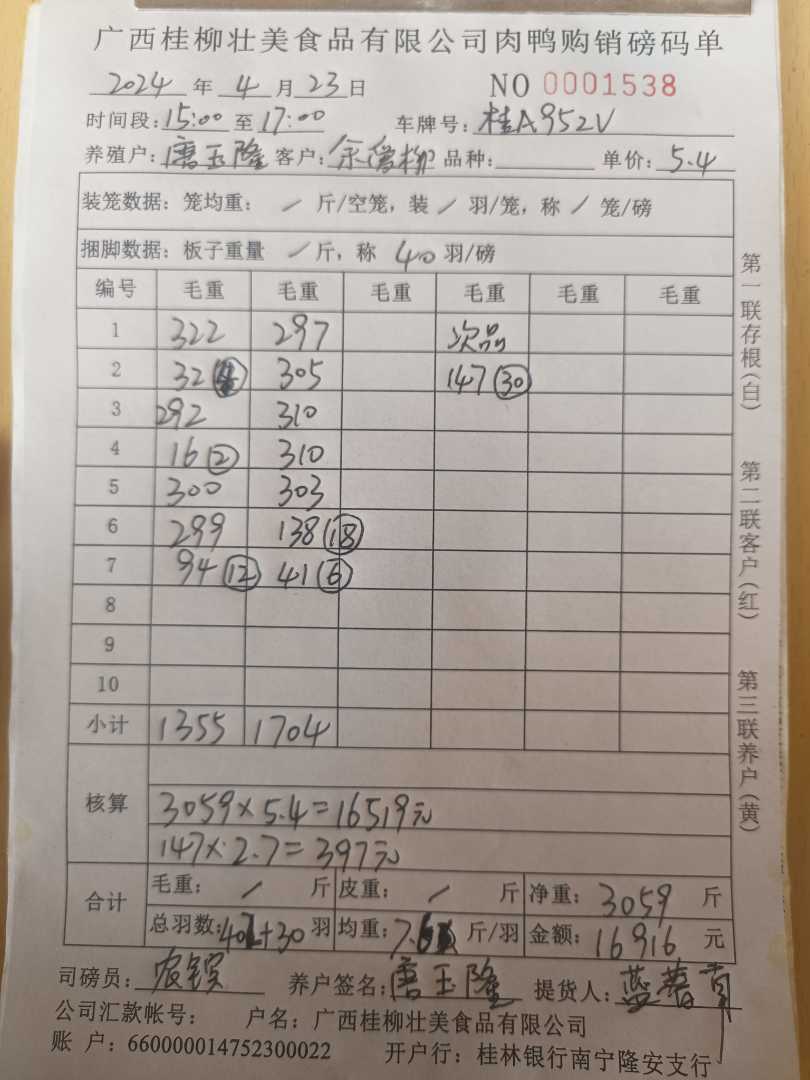 广西桂柳壮美食品有限公司肉鸭购销磅码单
2024 年 4 月 23 日 NO 0001538
时间段: 15:00 至 17:00 车牌号: 桂A952V
养殖户: 唐玉隆 客户: 柳 品种: 单价: 5.4
装笼数据: 笼均重: / 斤/空笼, 装 / 羽/笼, 称 / 笼/磅
捆脚数据: 板子重量 / 斤, 称 40 羽/磅
编号 毛重 毛重 毛重 毛重 毛重 毛重
1 322 297 次品
2 32 305 147 30
3 292 310
4 16 2 310
5 300 303
6 299 138 18
7 94 12 41 6
8
9
10
小计 1355 1704
核算 3059×5.4=16519元
147×2.7=397元
合计 毛重: / 斤 皮重: / 斤 净重: 3059 斤
总羽数: +30 羽 均重: 斤/羽 金额: 16916 元
司磅员: 养户签名: 唐玉隆 提货人: 蓝
公司汇款帐号: 户名: 广西桂柳壮美食品有限公司
账 户: 660000014752300022 开户行: 桂林银行南宁隆安支行
第一联存根(白)
第二联客户(红)
第三联养户(黄)